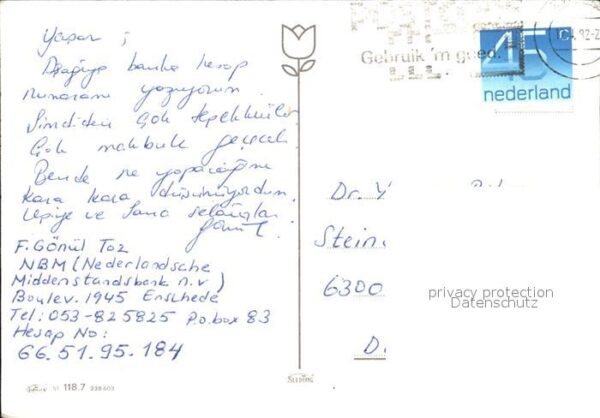 Yaşar ;
Aşağıya banka hesap
numaramı yazıyorum.
Şimdiden çok teşekkürler
Çok makbule geçecek
Bende ne yapacağımı
kara kara düşünüyordum.
ve Sana selamlar
F. Gönül Toz
NBM (Nederlandsche
Middenstandsbank n.v)
Boulev. 1945 Enschede
Tel: 053-825825 P.o.box 83
Hesap No:
66.51.95.184
118.7
Gebruik 'm goed.
45
nederland
Dr. Y
Stein
6300
privacy protection
Datenschutz
D